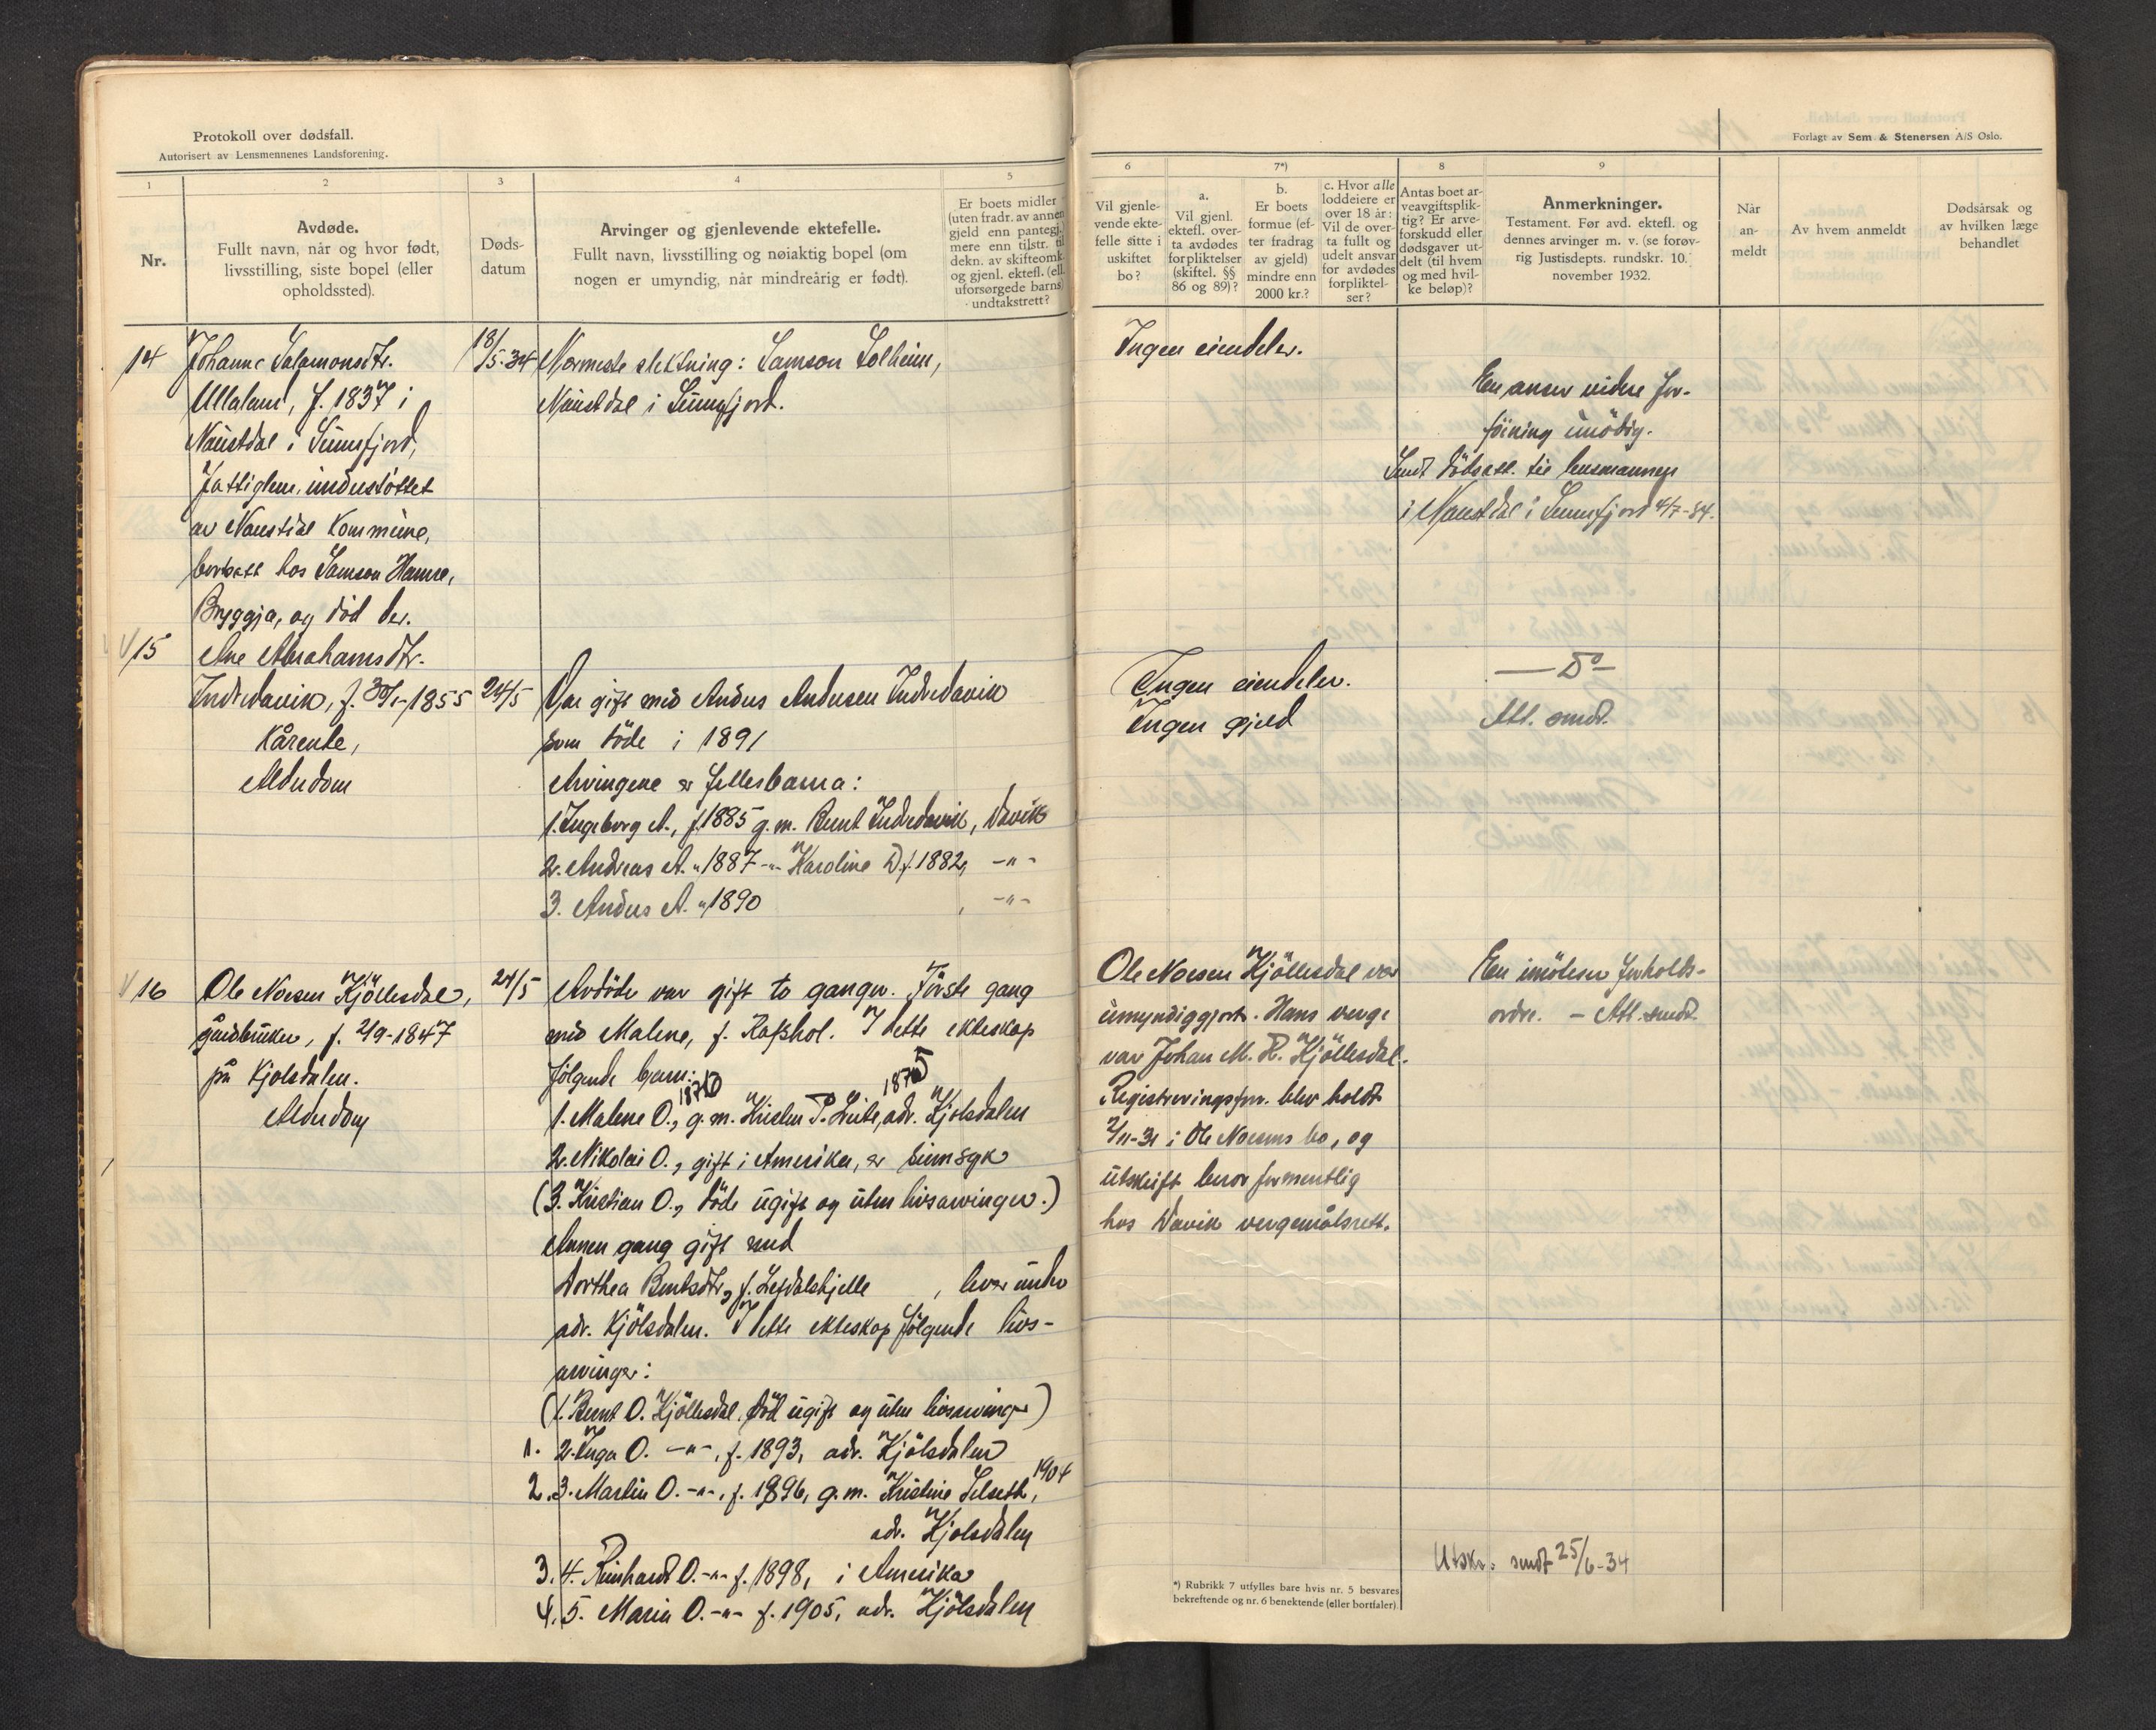 Protokoll over dødsfall.
Autorisert av Lensmennenes Landsforening.
1
2
3
4
5
Nr.
Avdøde.
Fullt navn, når og hvor født,
livsstilling, siste bopel (eller
opholdssted).
Døds-
datum
Arvinger og gjenlevende ektefelle.
Fullt navn, livsstilling og nøiaktig bopel (om
nogen er umyndig, når mindreårig er født).
Er boets midler
(uten fradr. av annen
gjeld enn pantegj.)
mere enn tilstr. til
dekn. av skifteomk.
og gjenl. ektefl. (ell.
uforsørgede barns)
undtakstrett?
14
Johanne Salamonsdtr.
Ullaland, f. 1837 i
Naustdal i Sunnfjord,
fattiglem, understøttet
av Naustdal kommune,
bortsatt hos Samson Hamre,
Bryggja, og død der.
18/5-34
Nærmeste slektning: Samson Solheim,
Naustdal i Sunnfjord.
15
Ane Abrahamsdtr.
Indredavik, f. 30/1-1855
Kårenke,
Alderdom
24/5
Var gift med Anders Andersen Indredavik
som døde i 1891
Arvingene er fellesbarna:
1. Ingeborg A., f. 1885 g.m. Bernt Indredavik, Davik
2. Andreas A. " 1887 -"- Karoline D. f. 1882, -"-
3. Anders A. " 1890 , -"-
16
Ole Noesen Kjöllesdal,
gårdbruker, f. 2/9-1847
på Kjölsdalen.
Alderdom
24/5
Avdöde var gift to ganger. Förste gang
med Malene, f. Rafshol. I dette ekteskap
følgende barn:
1. Malene O., 1870 g.m. Kristen P. Leite, 1875 adr. Kjölsdalen
2. Nikolai O., gift i Amerika, er sinnsyk
(3. Kristian O., döde ugift og uten livsarvinger.)
Annen gang gift med
Dorthea Berntsdtr., f. Lefdalskjelle , lever under
adr. Kjölsdalen. I dette ekteskap følgende livs-
arvinger:
(1. Bernt O. Kjöllesdal, död ugift og uten livsarvinger)
1. 2. Inga O. -"-, f. 1893, adr. Kjölsdalen
2. 3. Martin O. -"-, f. 1896, g.m. Kristine Selseth, 1904
adr. Kjölsdalen
3. 4. Reinhardt O. -"- f. 1898, i Amerika
4. 5. Maria O. -"- f. 1905, adr. Kjölsdalen
Forlagt av Sem & Stenersen A/S Oslo.
6
7*)
8
9
Vil gjenle-
vende ekte-
felle sitte i
uskiftet
bo?
a.
Vil gjenl.
ektefl. over-
ta avdødes
forpliktelser
(skiftel. §§
86 og 89)?
b.
Er boets
formue (ef-
ter fradrag
av gjeld)
mindre enn
2000 kr.?
c. Hvor alle
loddeiere er
over 18 år:
Vil de over-
ta fullt og
udelt ansvar
for avdødes
forpliktel-
ser?
Antas boet ar-
veavgiftsplik-
tig? Er arve-
forskudd eller
dødsgaver ut-
delt (til hvem
og med hvil-
ke beløp)?
Anmerkninger.
Testament. Før avd. ektefl. og
dennes arvinger m. v. (se forøv-
rig Justisdepts. rundskr. 10.
november 1932.
Når
an-
meldt
Av hvem anmeldt
Dødsårsak og
av hvilken læge
behandlet
Ingen eiendeler.
En anser videre for-
föining unödig.
Sendt dödsatt. til lensmannen
i Naustdal i Sunnfjord 4/7-34.
Ingen eiendeler.
Ingen gjeld
— Do —
Att. sendt.
Ole Noesen Kjöllesdal var
umyndiggjort. Hans verge
var Johan M. H. Kjöllesdal.
Registreringsforr. blev holdt
2/11-31 i Ole Noesens bo, og
utskrift beror formentlig
hos Davik vergemålsrett.
En imöteser forholds-
ordre. - Att. sendt.
Utskr. sendt 25/6-34
*) Rubrikk 7 utfylles bare hvis nr. 5 besvares
bekreftende og nr. 6 benektende (eller bortfaler).